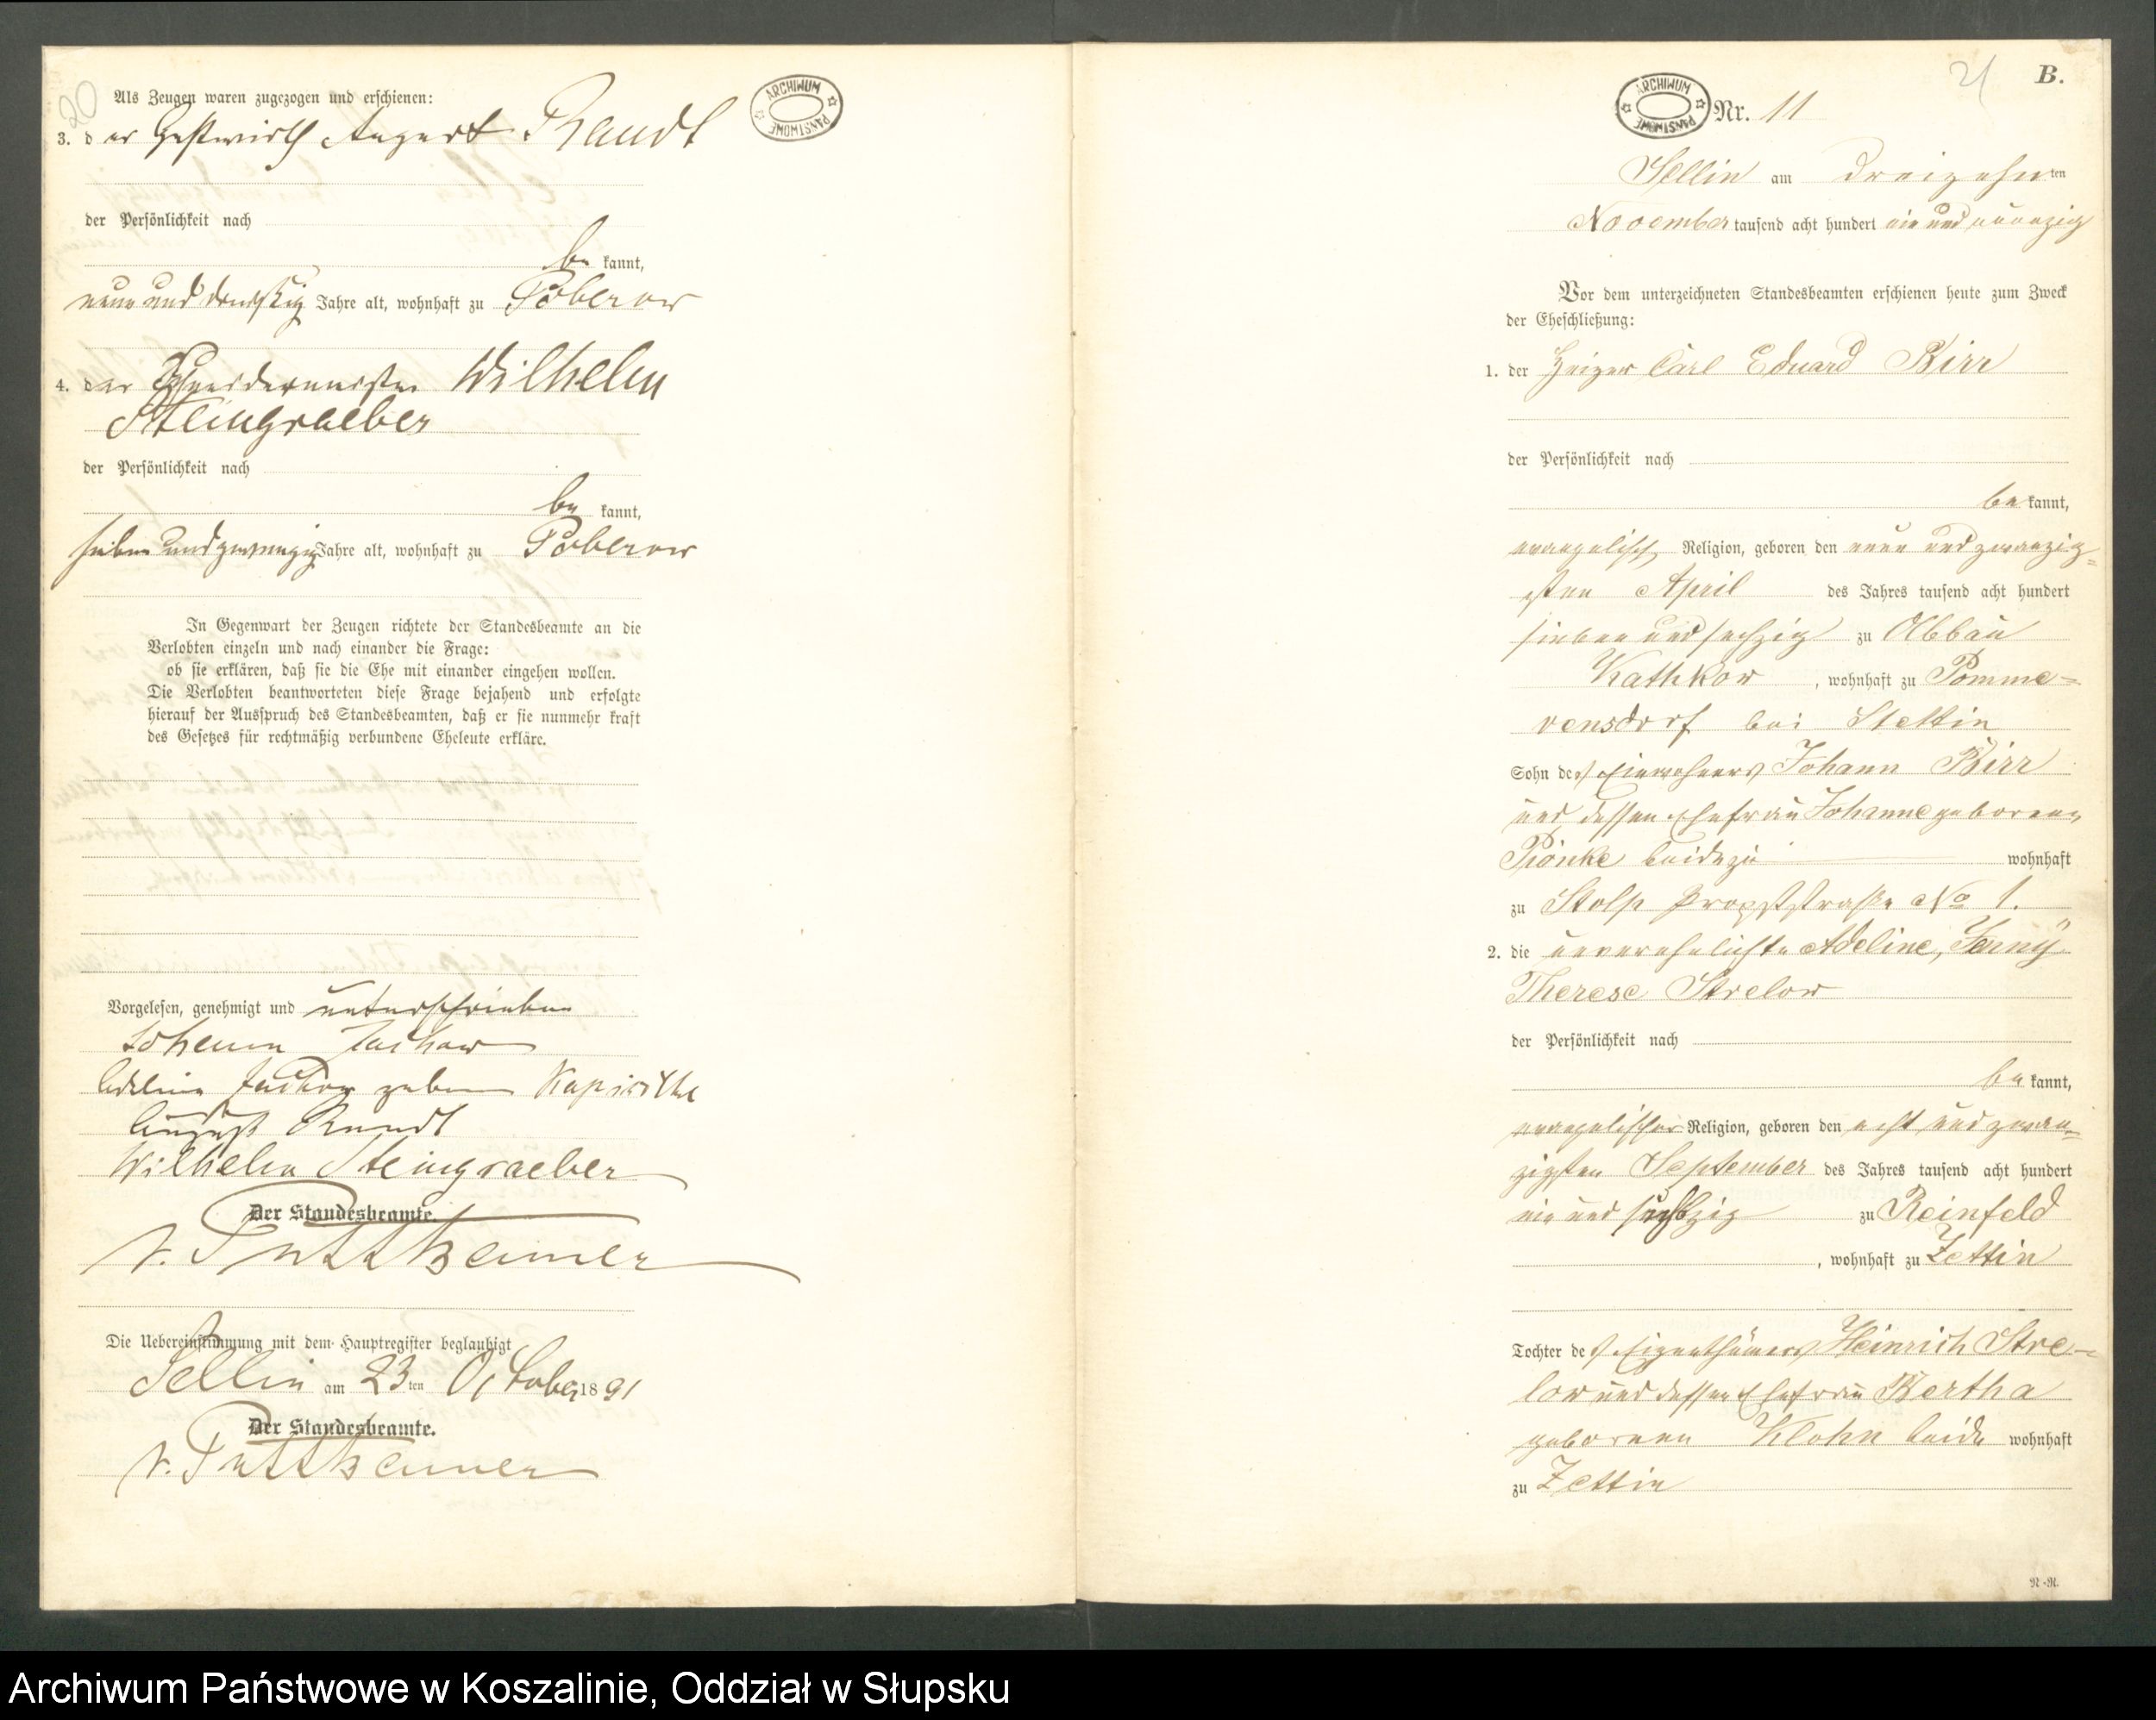 20
Als Zeugen waren zugezogen und erschienen:
3. der Gastwirth August Raudt
der Persönlichkeit nach
be kannt,
neun und dreißig Jahre alt, wohnhaft zu Poberow
4. der Schneidermeister Wilhelm
Steingraeber
der Persönlichkeit nach
be kannt,
sieben und zwanzig Jahre alt, wohnhaft zu Poberow
In Gegenwart der Zeugen richtete der Standesbeamte an die
Verlobten einzeln und nach einander die Frage:
ob sie erklären, daß sie die Ehe mit einander eingehen wollen.
Die Verlobten beantworteten diese Frage bejahend und erfolgte
hierauf der Ausspruch des Standesbeamten, daß er sie nunmehr kraft
des Gesetzes für rechtmäßig verbundene Eheleute erkläre.
Vorgelesen, genehmigt und unterschrieben
Johann
Adeline geborene
August Raudt
Wilhelm Steingraeber
Der Standesbeamte.
v. Puttkamer
Die Uebereinstimmung mit dem Hauptregister beglaubigt
Sellin am 23ten October 1891
Der Standesbeamte.
v. Puttkamer
ARCHIWUM PAŃSTWOWE
21
B.
ARCHIWUM PAŃSTWOWE
Nr. 11
Sellin am dreizehnten
November tausend acht hundert ein und neunzig
Vor dem unterzeichneten Standesbeamten erschienen heute zum Zweck
der Eheschließung:
1. der Heizer Carl Eduard Birr
der Persönlichkeit nach
be kannt,
evangelisch Religion, geboren den neun und zwanzig=
sten April des Jahres tausend acht hundert
sieben und sechzig zu Abbau
Kathkow, wohnhaft zu Pomme=
rensdorf bei Stettin
Sohn des Einwohners Johann Birr
und dessen Ehefrau Johanne geborene
Piönke beide zu wohnhaft
zu Stolp Propststraße No 1.
2. die unverehelichte Adeline, Jenny
Therese Strelow
der Persönlichkeit nach
be kannt,
evangelischer Religion, geboren den acht und zwan=
zigsten September des Jahres tausend acht hundert
ein und sechzig zu Reinfeld
, wohnhaft zu Zettin
Tochter des Eigenthümers Heinrich Stre=
low und dessen Ehefrau Bertha
geborenen Klohn beide wohnhaft
zu Zettin
Archiwum Państwowe w Koszalinie, Oddział w Słupsku